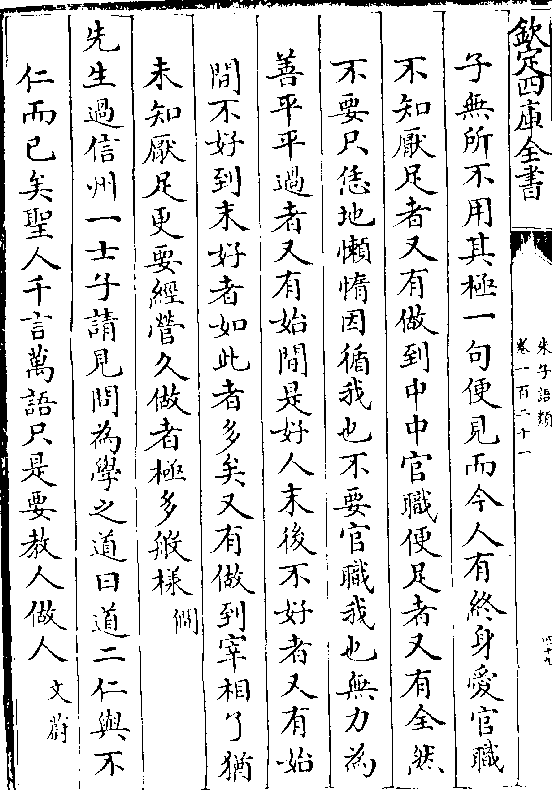 欽定四庫全書
朱子語類
卷一百二十一
四十九
子無所不用其極一句便見而今人有終身愛官職
不知厭足者又有做到中中官職便足者又有全然
不要只恁地懶惰因循我也不要官職我也無力為
善平平過者又有始間是好人末後不好者又有始
間不好到末好者如此者多矣又有做到宰相了猶
未知厭足更要經營久做者極多般樣僩
先生過信州一士子請見問為學之道曰道二仁與不
仁而已矣聖人千言萬語只是要教人做人文蔚